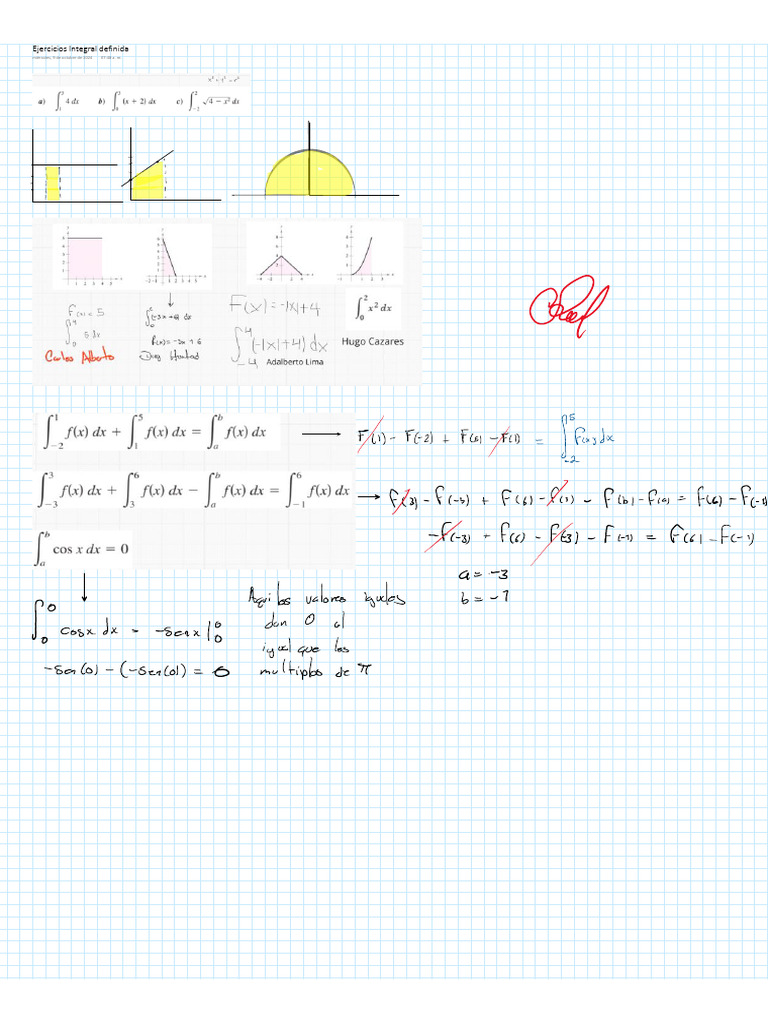 Ejercicios Integral definida
miércoles, 11 de octubre de 2023
x² + y² = r²
a) ∫₁³ 4 dx   b) ∫₀³ (x + 2) dx   c) ∫₋₂² √4 − x² dx
F(x) = 5
∫₀⁴ 5 dx
Carlos Alberto
f(x) = -3x + 6
F(x) = -|x|+4
∫₋₄⁴ (-|x|+4) dx
Adalberto Lima
∫₀² x² dx
Hugo Cazares
∫₋₂¹ f(x) dx + ∫₁⁵ f(x) dx = ∫ₐᵇ f(x) dx
F(1) - F(-2) + F(5) - F(1) = ∫₋₂⁵ F(x) dx
∫₋₃³ f(x) dx + ∫₃⁶ f(x) dx − ∫ₐᵇ f(x) dx = ∫₋₁⁶ f(x) dx
F(3) - F(-3) + F(6) - F(3) - F(b) - F(a) = F(6) - F(-1)
-F(-3) + F(6) - F(-3) - F(-1) = F(6) - F(-1)
∫ₐᵇ cos x dx = 0
a = -3
b = -1
∫₀⁰ cosx dx = -senx |₀⁰
-sen(0) - (-sen(0)) = 0
Aqui los valores iguales
dan 0 al
igual que los
multiplos de π